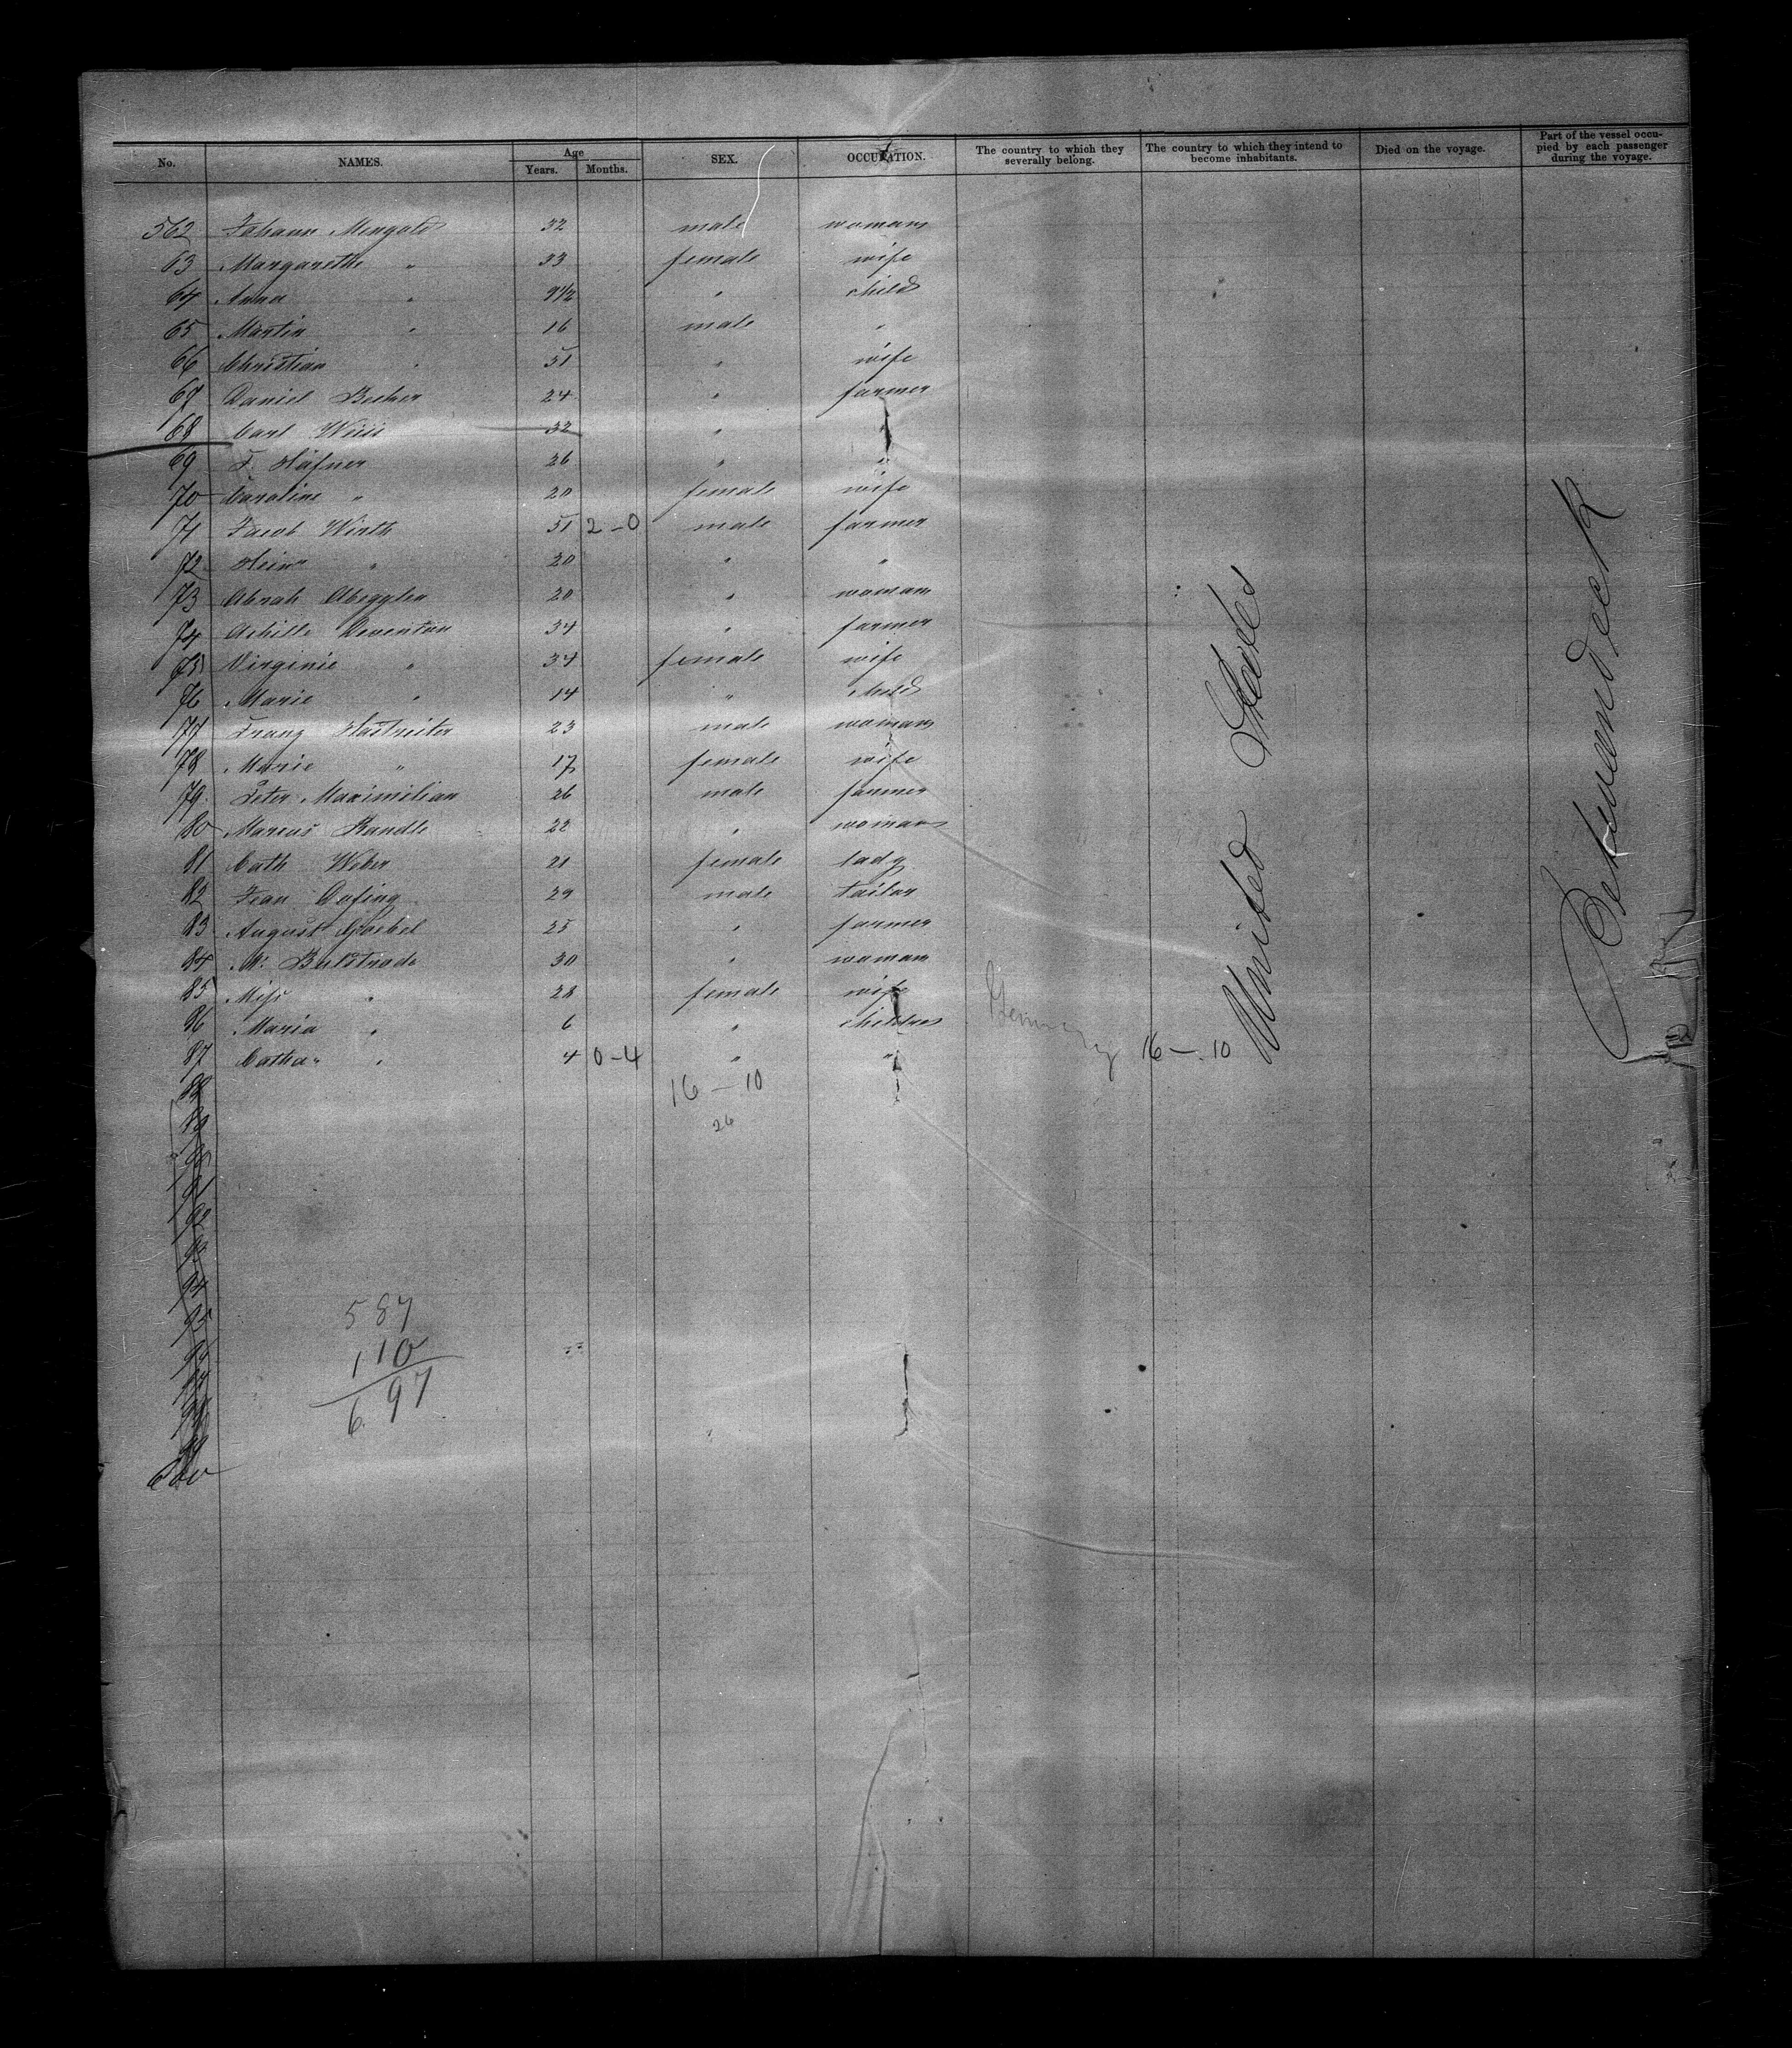 No. NAMES. Age Years. Months. SEX. OCCUPATION. The country to which they severally belong. The country to which they intend to become inhabitants. Died on the voyage. Part of the vessel occupied by each passenger during the voyage.
562 Johann Mengold 32 male woman
63 Margarethe " 33 female wife
64 Anna " 9 1/2 " child
65 Martin " 16 male "
66 Christian " 51 " wife
67 Daniel Becker 24 " farmer
68 Carl 32 " "
69 F. Häfner 26 " "
70 Caroline " 20 female wife
71 Jacob Wirth 51 2-0 male farmer
72 Heinr " 20 " "
73 Abrah Abegglen 20 " woman
74 Achille 34 " farmer
75 Virginie " 34 female wife
76 Marie " 14 " child
77 Franz Hastreiter 23 male woman
78 Marie " 17 female wife
79 Peter Maximilian 26 male farmer
80 Marcus Bandle 22 " woman
81 Cath Weber 21 female lady
82 Jean 29 male tailor
83 August Goebel 25 " farmer
84 M. Bulstrode 30 " woman
85 Miss " 28 female wife
86 Maria " 6 " children
87 Catha " 4 0-4 " " Germany 16 - 10
United States
Betweendeck
16 - 10
26
91
92
94
95
587
110
697
600